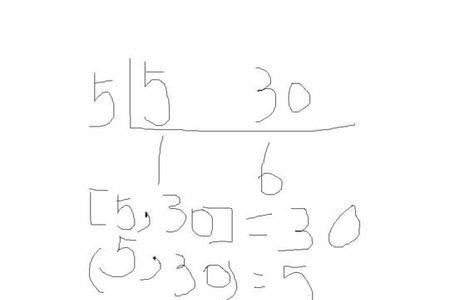 5 5 30
1 6
[5,30]=30
(5,30)=5